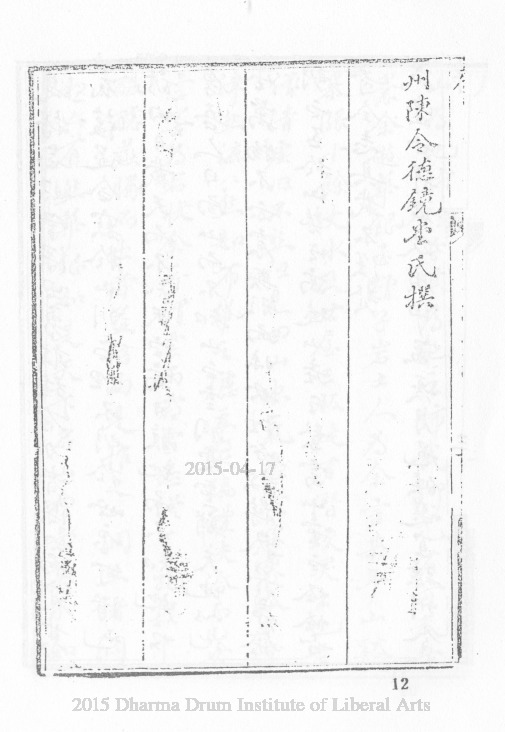 州陳令德鏡堂氏撰
2015-04-17
12
2015 Dharma Drum Institute of Liberal Arts